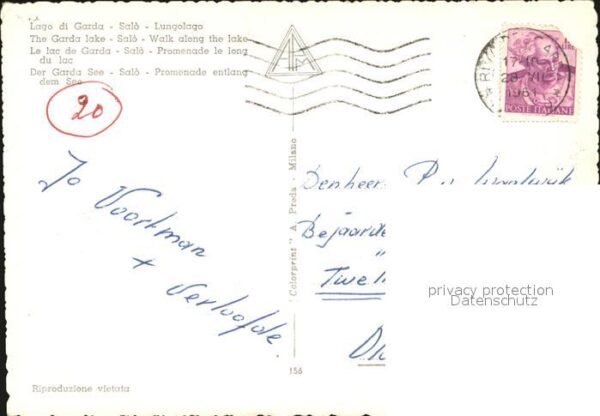 Lago di Garda - Salò - Lungolago
The Garda lake - Salò - Walk along the lake
Le lac de Garda - Salò - Promenade le long
du lac
Der Garda See - Salò - Promenade entlang
dem See
20
17-18
28 VII
1961
POSTE ITALIANE
Jo Voortman
+ Verloofde.
"Colorprint" A. Preda - Milano
Denheer P.
Bejaarde
Twel
privacy protection
Datenschutz
156
Riproduzione vietata